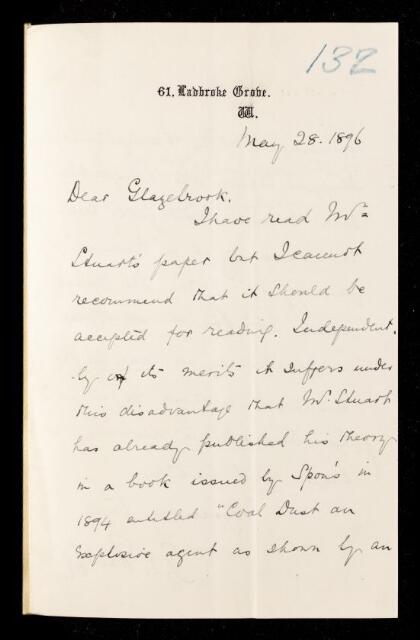 132
61, Ladbroke Grove.
W.
May 28. 1896
Dear Glazebrook.
I have read Mr
Stuart's paper but I cannot
recommend that it should be
accepted for reading. Independent.
-ly of its merits it suffers under
this disadvantage that Mr. Stuart
has already published his theory
in a book issued by Spon's in
1894 entitled "Coal Dust an
Explosive agent as shown by an